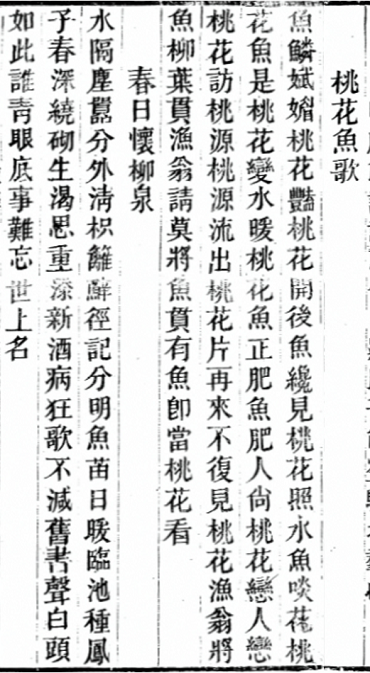 桃花魚歌
魚鱗斌媚桃花豔桃花開後魚纔見桃花照水魚啖花桃
花魚是桃花變水暖桃花魚正肥魚肥人尙桃花戀人戀
桃花訪桃源桃源流出桃花片再來不復見桃花漁翁將
魚柳葉貫漁翁請莫將魚貫有魚卽當桃花看
春日懷柳泉
水隔塵囂分外清枳籬蘚徑記分明魚苗日暖臨池種鳳
子春深繞砌生渴思重添新酒病狂歌不減舊書聲白頭
如此誰靑眼底事難忘世上名